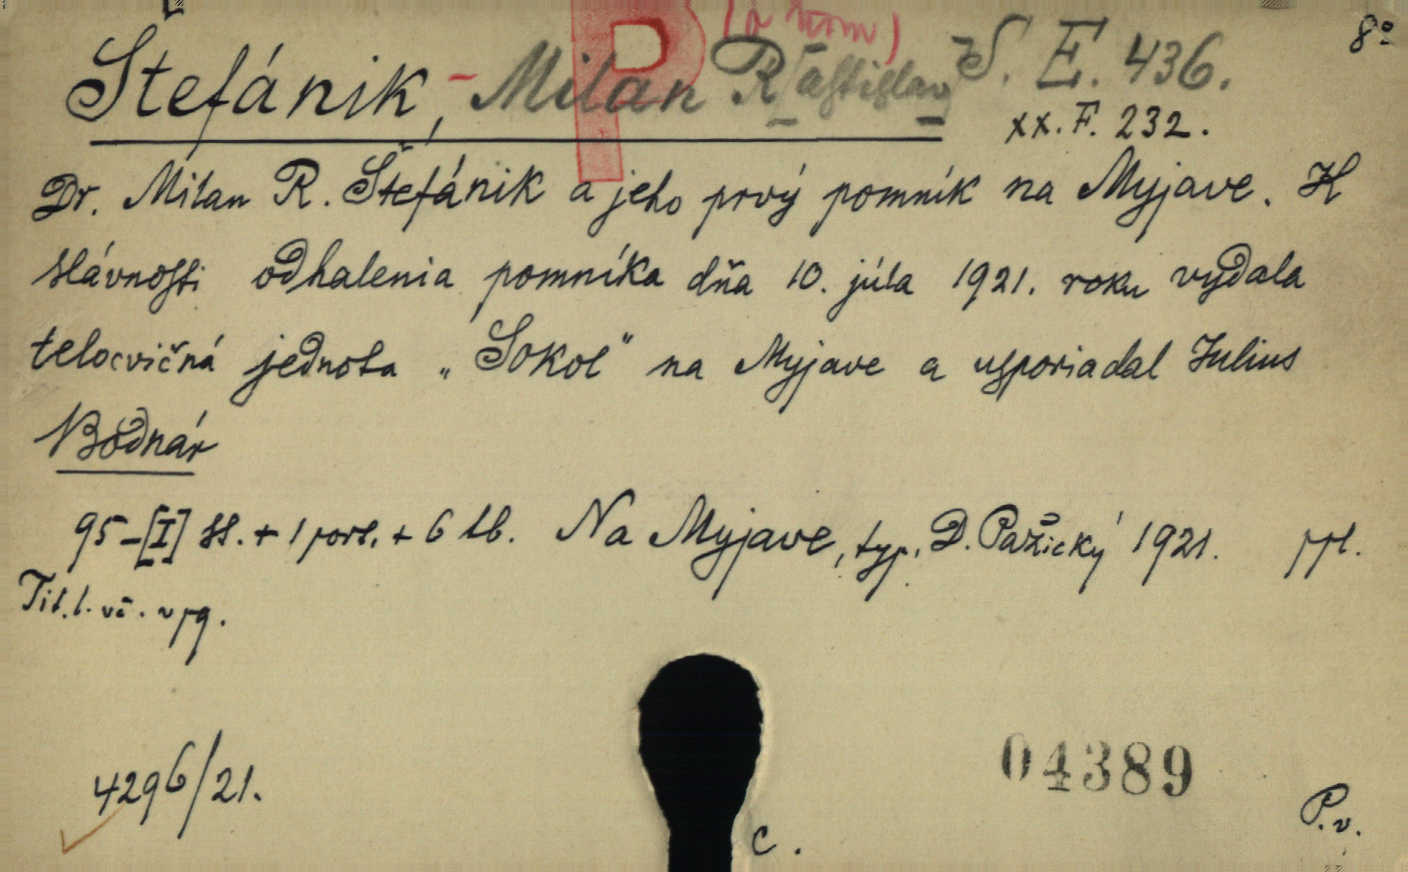 P (o něm)
8°
Štefánik, Milan R[astislav] S. E. 436.
XX. F. 232.
Dr. Milan R. Štefánik a jeho prvý pomník na Myjave. K
slávnosti odhalenia pomníka dňa 10. júla 1921. roku vydala
telocvičná jednota „Sokol" na Myjave a usporiadal Julius
Bodnár
95-[I] ss. + 1 port. + 6 tb. Na Myjave, typ. D. Pažický 1921. ppl.
Tit. l. vč. v pg.
4296/21.
04389
P. v.
c.